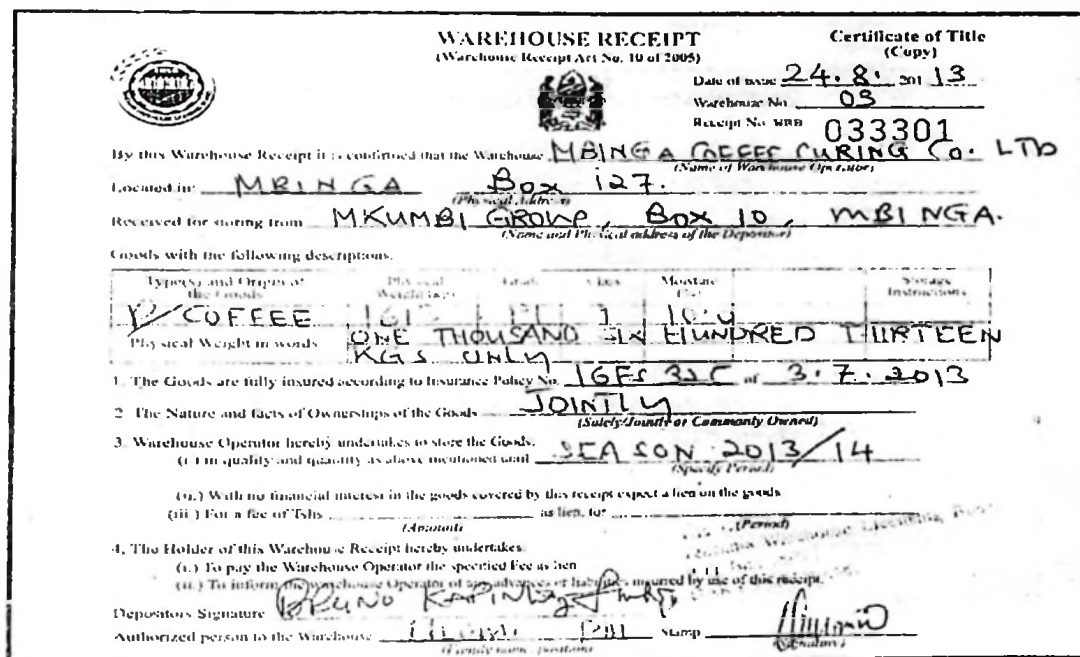 WAREHOUSE RECEIPT
(Warehouse Receipt Act No. 10 of 2005)
Certificate of Title
(Copy)
Date of issue 24.8. 201 13
Warehouse No. 03
Receipt No. WRB 033301
By this Warehouse Receipt it is confirmed that the Warehouse MBINGA COFFEE CURING Co. LTD
(Name of Warehouse Operator)
Located in: MBINGA Box 127.
(Physical Address)
Received for storing from MKUMBI GROUP, Box 10, MBINGA.
(Name and Physical address of the Depositor)
Goods with the following descriptions.
Type(s) and Origin of the Goods Physical Weight Grade Class Moisture Storage Instructions
P/COFFEE 1613
Physical Weight in words ONE THOUSAND SIX HUNDRED THIRTEEN
KGS ONLY
1. The Goods are fully insured according to Insurance Policy No. of 3.7.2013
2 The Nature and facts of Ownerships of the Goods JOINTLY
(Solely/Jointly or Commonly Owned)
3. Warehouse Operator hereby undertakes to store the Goods:
(i.) in quality and quantity as above mentioned until SEASON 2013/14
(Specify Period)
(ii.) With no financial interest in the goods covered by this receipt expect a lien on the goods
(iii.) For a fee of Tshs as lien, for
(Amount) (Period)
4, The Holder of this Warehouse Receipt hereby undertakes
(i.) To pay the Warehouse Operator the specified Fee as lien
(ii.) To inform the warehouse Operator of any advances or liabilities incurred by use of this receipt.
Depositors Signature BRUNO
Authorized person to the Warehouse Stamp
(Signature)